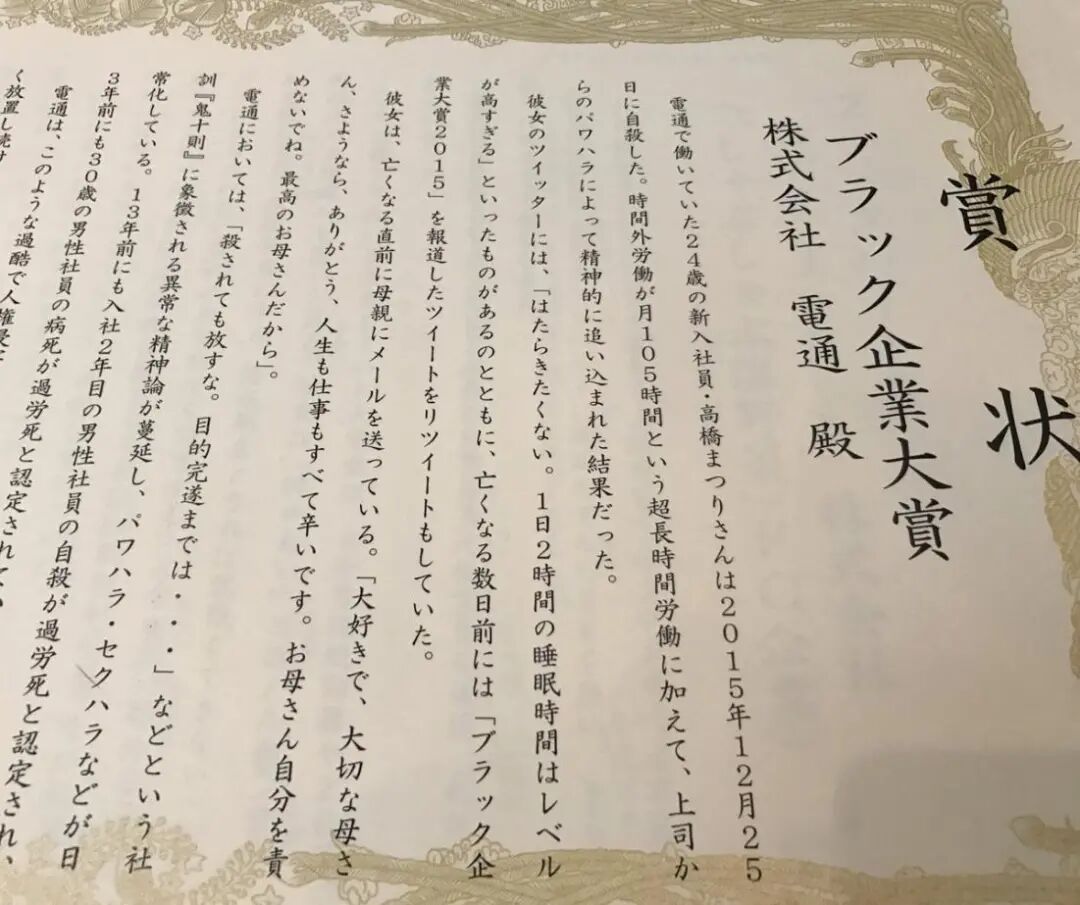 賞状
ブラック企業大賞
株式会社 電通 殿
電通で働いていた24歳の新入社員・高橋まつりさんは2015年12月25
日に自殺した。時間外労働が月105時間という超長時間労働に加えて、上司か
らのパワハラによって精神的に追い込まれた結果だった。
彼女のツイッターには、「はたらきたくない。1日2時間の睡眠時間はレベル
が高すぎる」といったものがあるのとともに、亡くなる数日前には「ブラック企
業大賞2015」を報道したツイートをリツイートもしていた。
彼女は、亡くなる直前に母親にメールを送っている。「大好きで、大切な母さ
ん、さようなら、ありがとう、人生も仕事もすべて辛いです。お母さん自分を責
めないでね。最高のお母さんだから」。
電通においては、「殺されても放すな。目的完遂までは・・・」などという社
訓『鬼十則』に象徴される異常な精神論が蔓延し、パワハラ・セクハラなどが日
常化している。13年前にも入社2年目の男性社員の自殺が過労死と認定され、
3年前にも30歳の男性社員の病死が過労死と認定されて
電通は、このような過酷で人権侵
く放置し続け